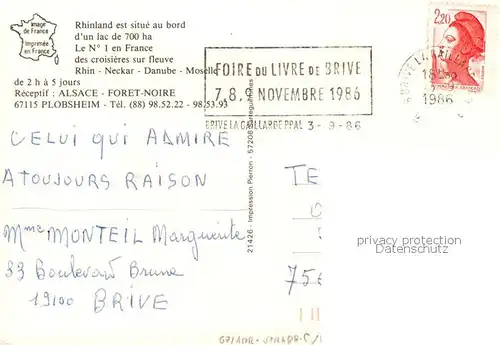 Image
de France
Imprimée
en France
Rhinland est situé au bord
d'un lac de 700 ha
Le N° 1 en France
des croisières sur fleuve
Rhin - Neckar - Danube - Moselle
de 2 h à 5 jours
Réceptif : ALSACE - FORET-NOIRE
67115 PLOBSHEIM - Tél. (88) 98.52.22 - 98.53.93
FOIRE DU LIVRE DE BRIVE
7.8.9 NOVEMBRE 1986
BRIVE LA GAILLARDE PPAL 3-9-86
2,20
1986
CELUI QUI ADMIRE
A TOUJOURS RAISON
Mme MONTEIL Marguerite
33 Boulevard Brune
19100
BRIVE
21426 - Impression Pierron - 57206 Sarreguemines
TE
75
privacy protection
Copyright
Stamps-Dealer.com